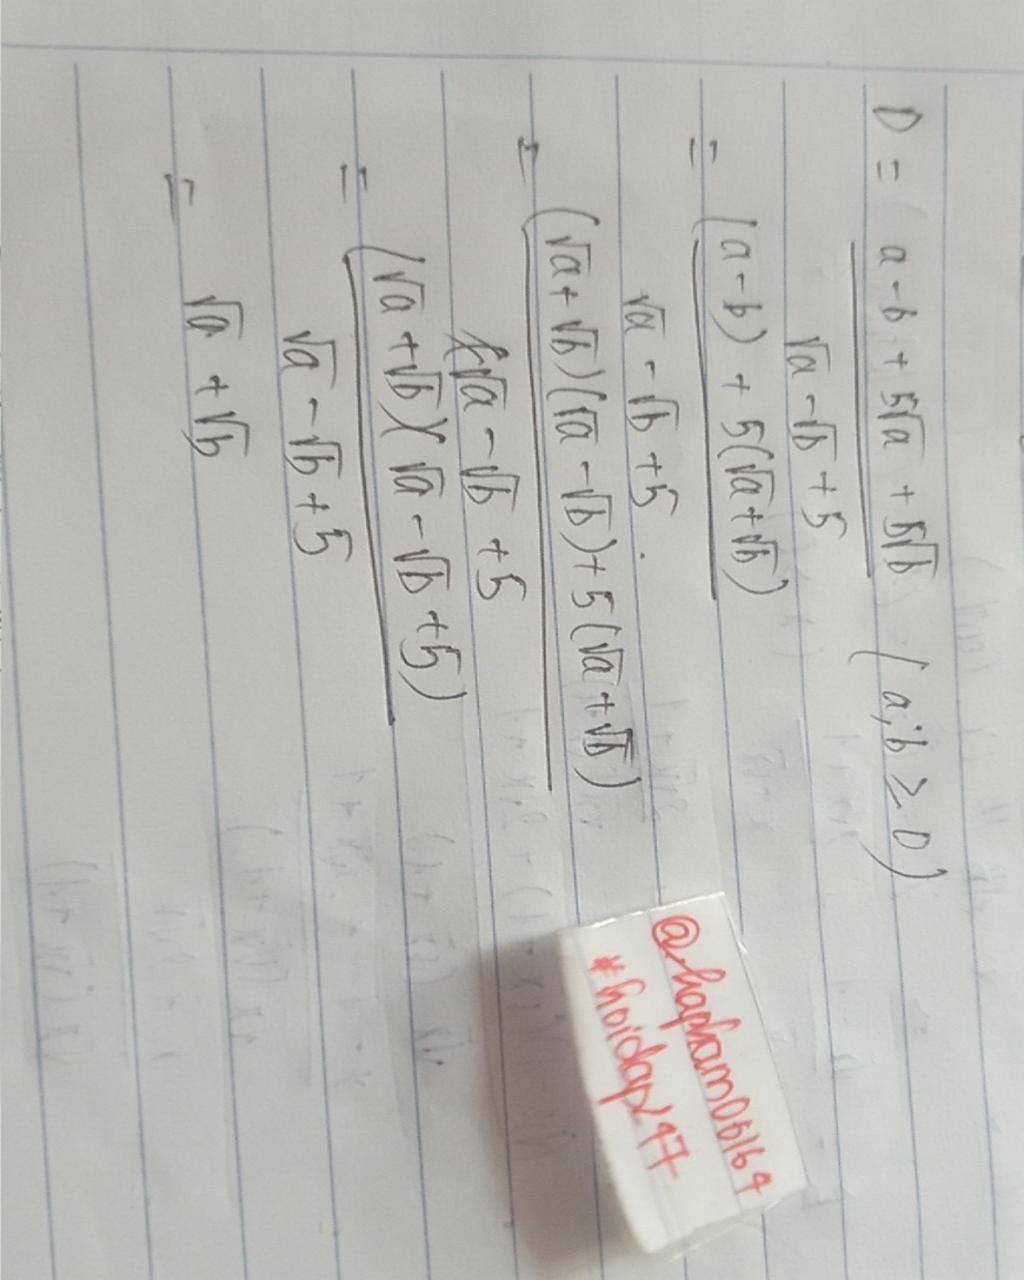 D = a-b + 5√a + 5√b (a;b ≥ 0)
√a - √b + 5
= (a-b) + 5(√a+√b)
√a - √b + 5
= (√a+√b)(√a-√b)+5(√a+√b)
√a - √b + 5
= (√a+√b)(√a-√b+5)
√a - √b + 5
= √a + √b
@hapham05164
#hoidap247